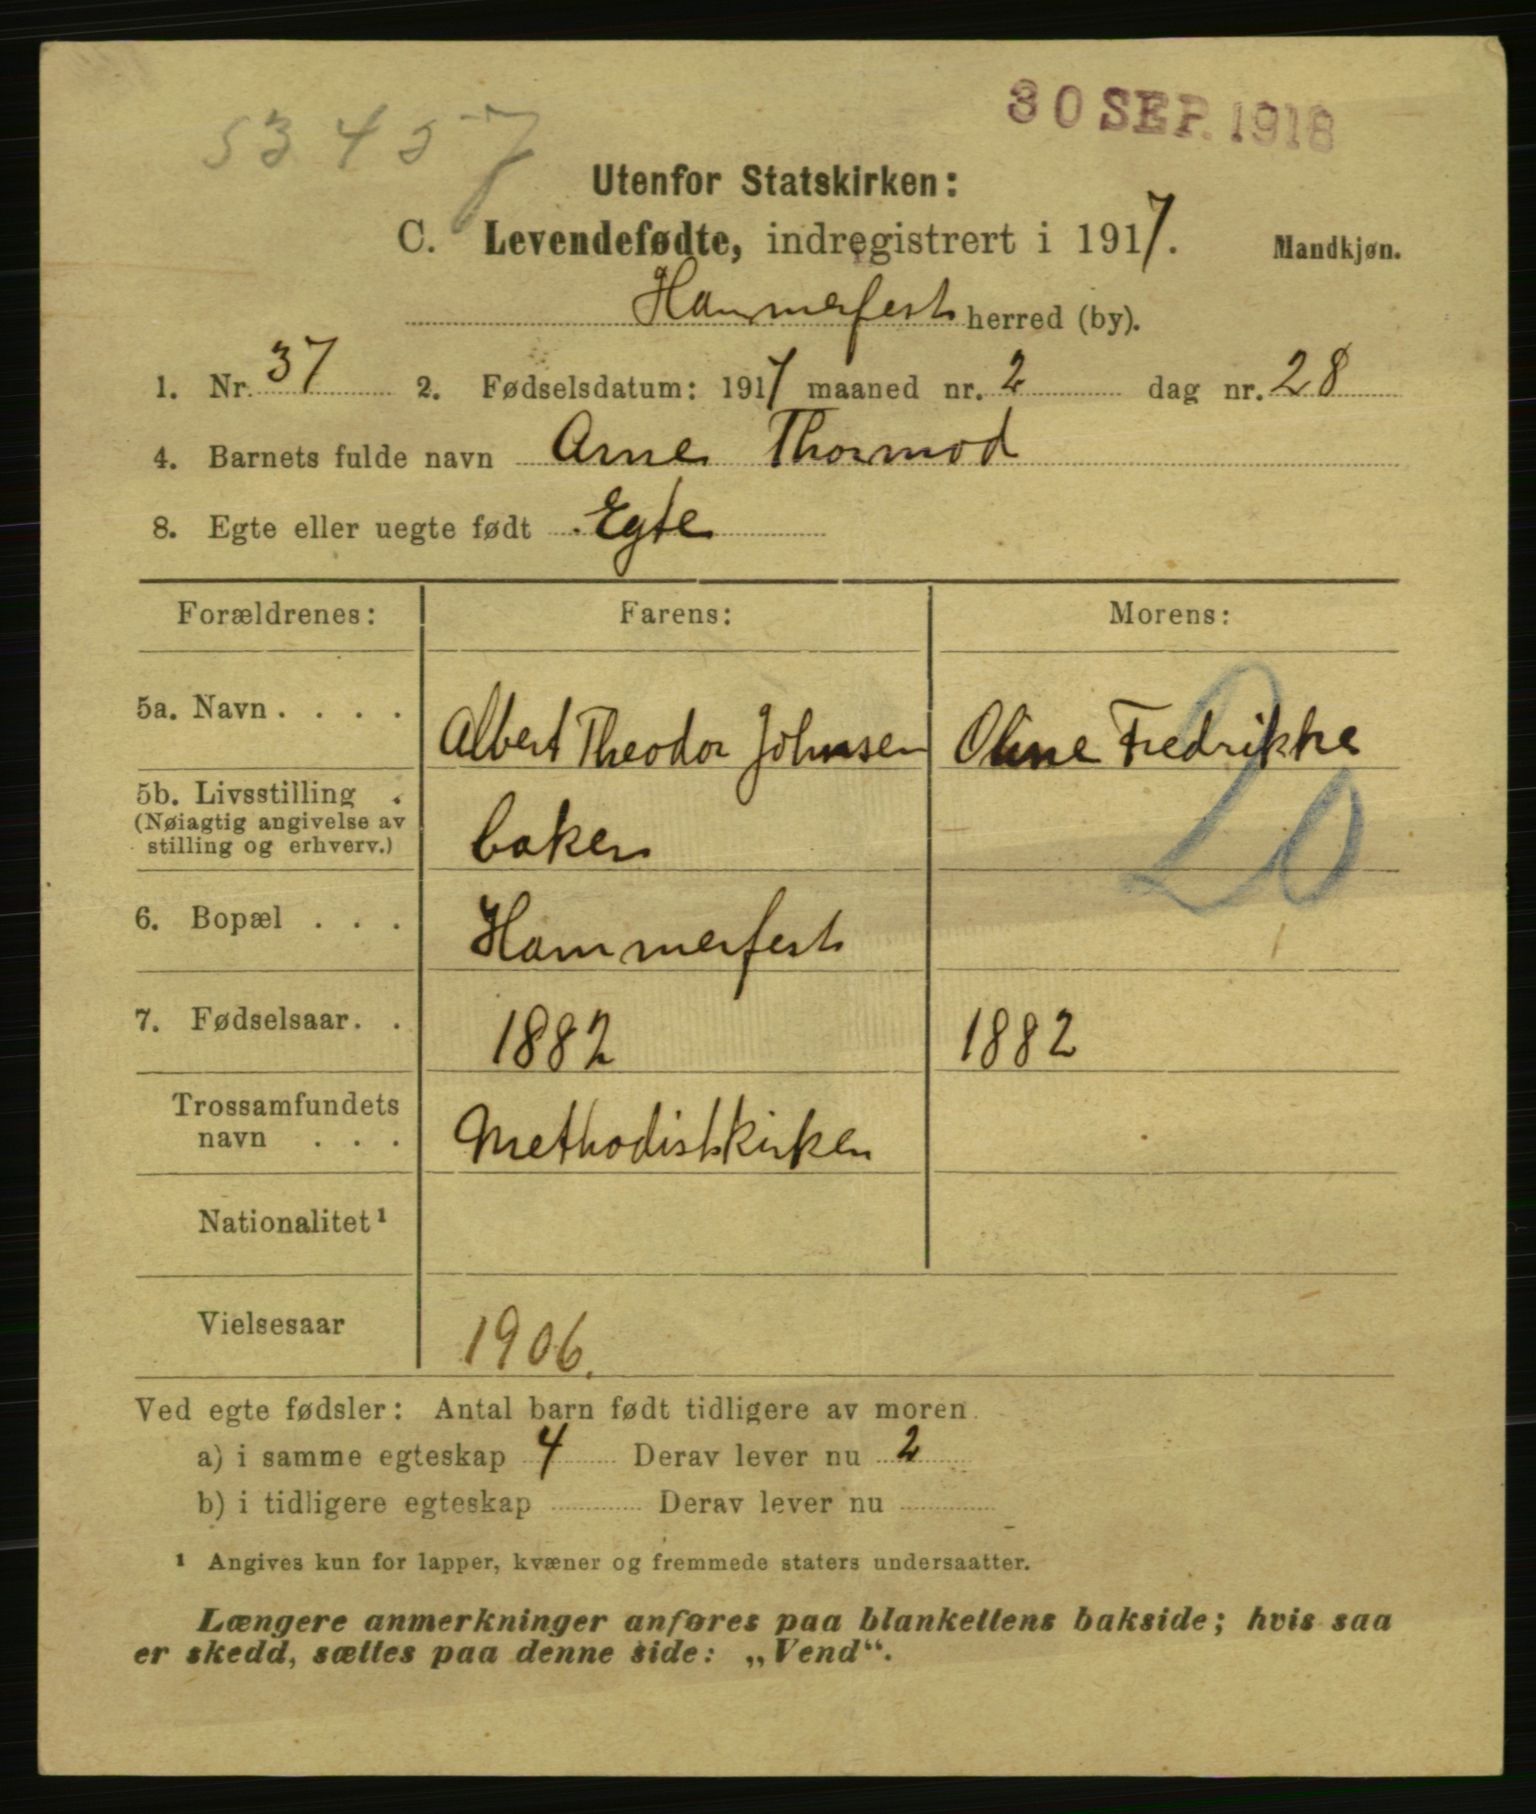 53457
30 SEP. 1918
Utenfor Statskirken:
C. Levendefødte, indregistrert i 1917. Mandkjøn.
Hammerfest herred (by).
1. Nr. 37 2. Fødselsdatum: 1917 maaned nr. 2 dag nr. 28
4. Barnets fulde navn Arne Thormod
8. Egte eller uegte født Egte
Forældrenes: Farens: Morens:
5a. Navn . . . . Albert Theodor Johnsen Oline Fredrikke
5b. Livsstilling .
(Nøiagtig angivelse av
stilling og erhverv.) baker
20
6. Bopæl . . . Hammerfest
7. Fødselsaar. . 1882 1882
Trossamfundets
navn . . . Methodistkirken
Nationalitet¹
Vielsesaar 1906.
Ved egte fødsler: Antal barn født tidligere av moren
a) i samme egteskap 4 Derav lever nu 2
b) i tidligere egteskap Derav lever nu
¹ Angives kun for lapper, kvæner og fremmede staters undersaatter.
Længere anmerkninger anføres paa blankettens bakside; hvis saa
er skedd, sættes paa denne side: „Vend“.